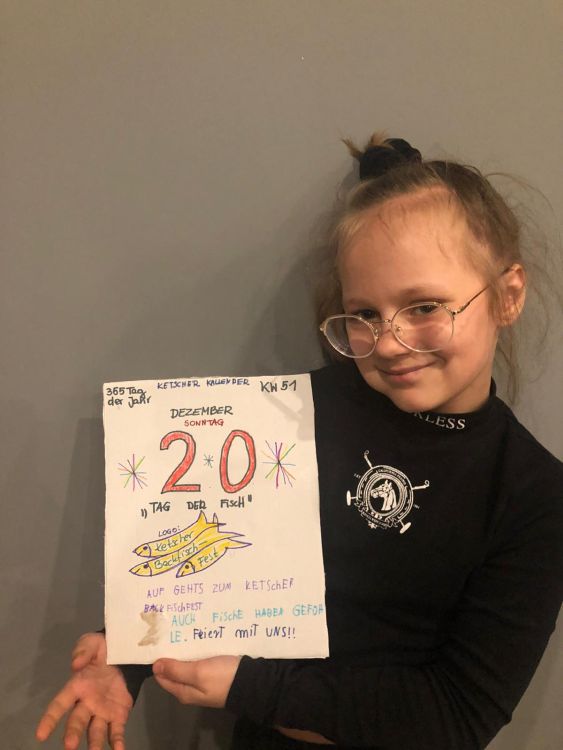 365 Tag
der Jahr
KETSCHER KALLENDER
KW 51
DEZEMBER
SONNTAG
20
"TAG DER FiSCH"
LOGO:
Ketscher
Backfisch-
Fest
AUF GEHTS ZUM KETSCHER
BACKFiSCHFEST
AUCH FiSCHE HABEN GEFÜH
LE. Feiert mit UNS!!
RLESS